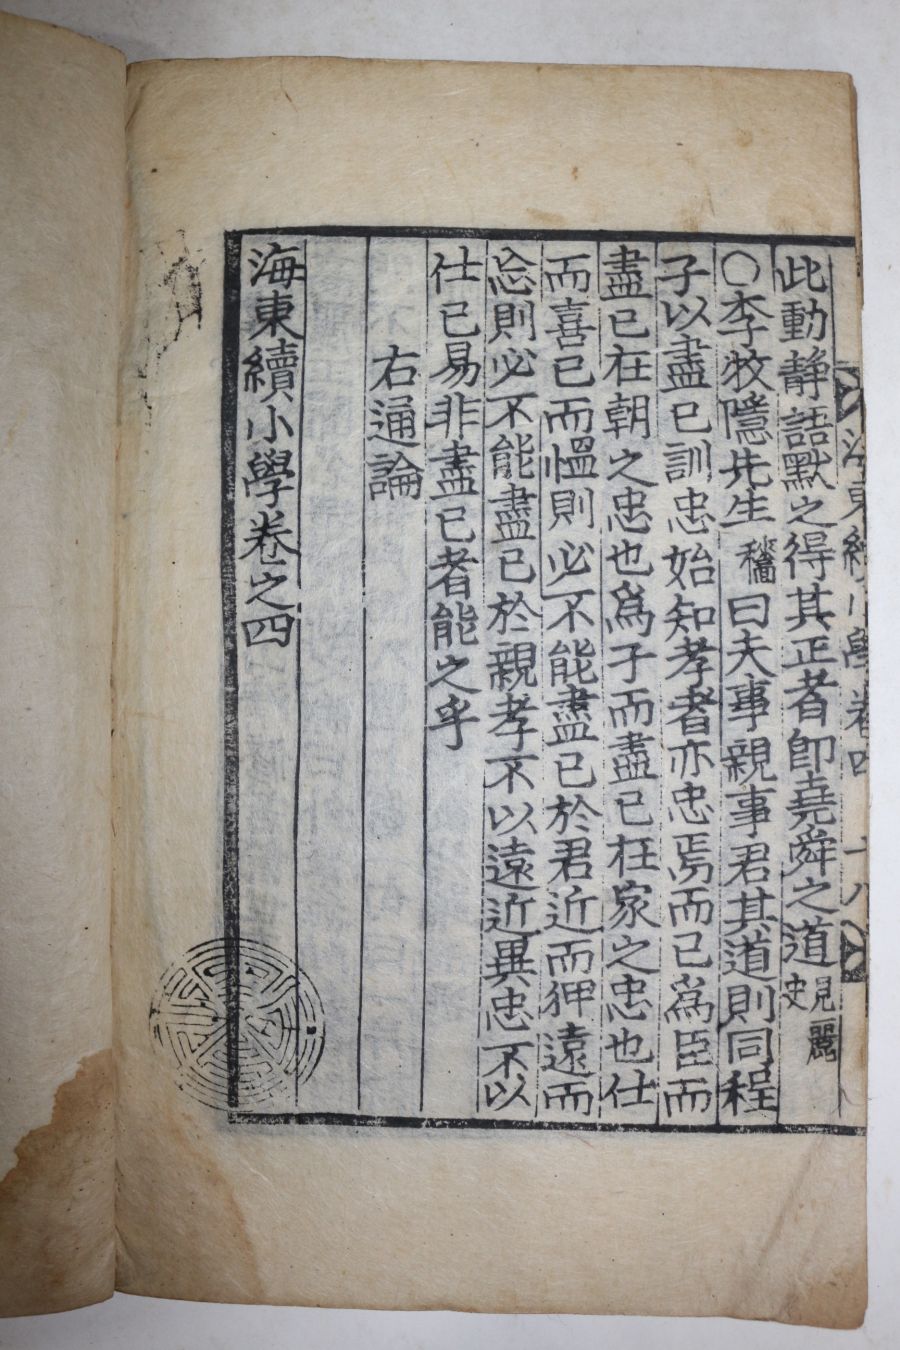 海東續小學卷四 十八
此動静語默之得其正者即堯舜之道見麗史
○李牧隱先生穡曰夫事親事君其道則同程
子以盡已訓忠始知孝者亦忠焉而已爲臣而
盡已在朝之忠也爲子而盡已在家之忠也仕
而喜已而慍則必不能盡已於君近而狎遠而
忩則必不能盡已於親孝不以遠近異忠不以
仕已易非盡已者能之乎
右通論
海東續小學卷之四